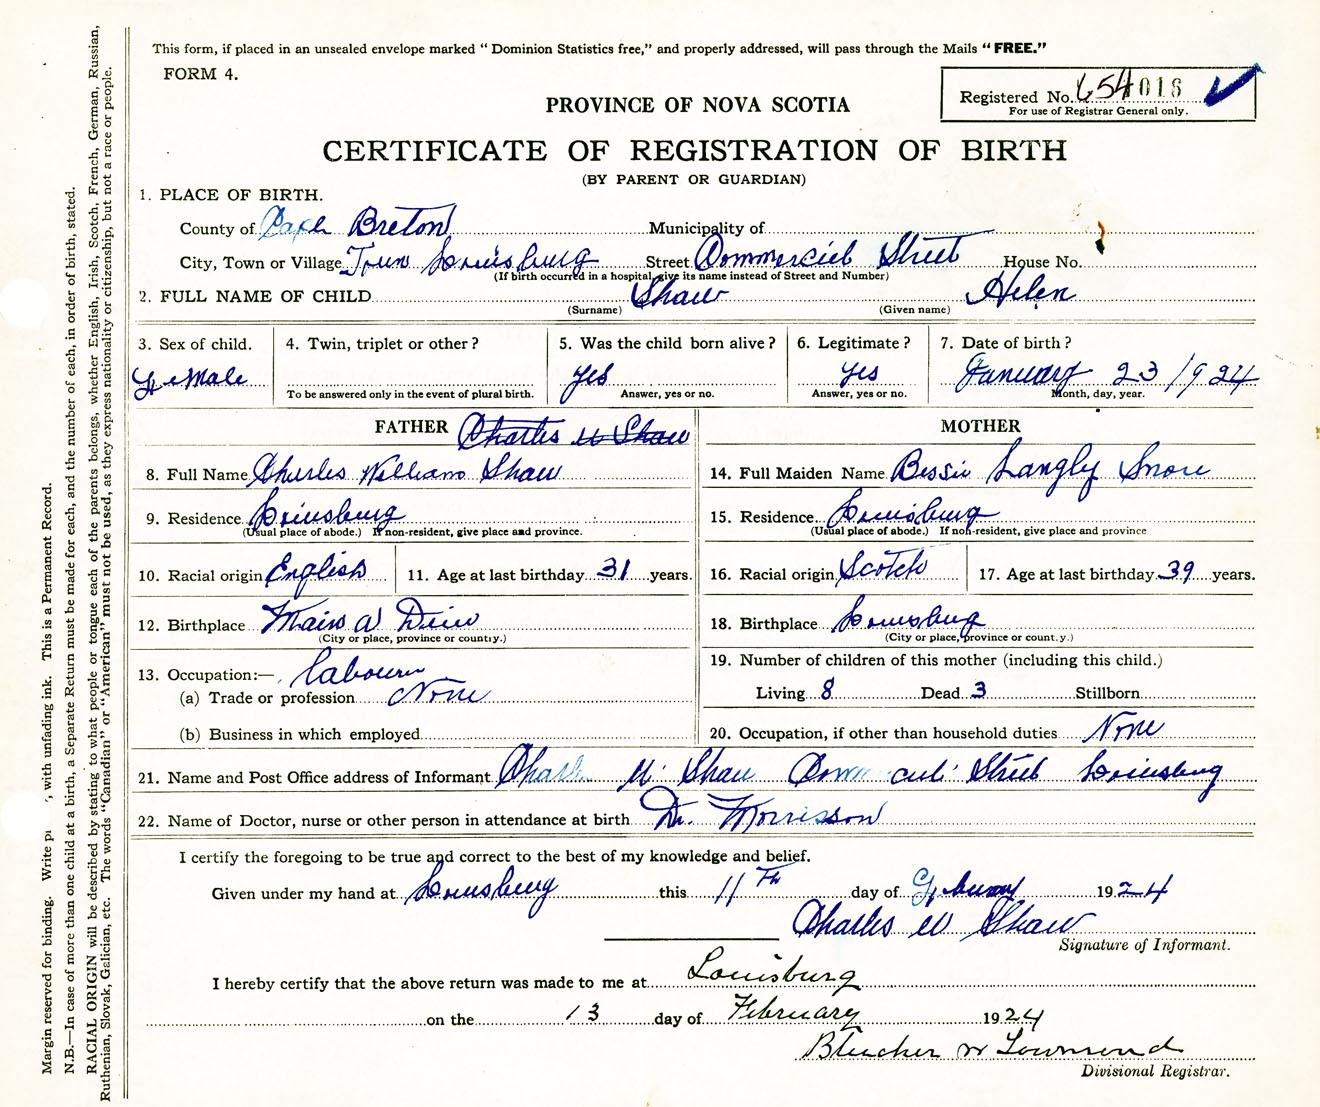 This form, if placed in an unsealed envelope marked “ Dominion Statistics free,” and properly addressed, will pass through the Mails “ FREE.”
FORM 4.
Registered No. 654018
For use of Registrar General only.
PROVINCE OF NOVA SCOTIA
CERTIFICATE OF REGISTRATION OF BIRTH
(BY PARENT OR GUARDIAN)
1. PLACE OF BIRTH.
County of Cape Breton Municipality of
City, Town or Village Town Louisburg Street Commercial Street House No.
(If birth occurred in a hospital, give its name instead of Street and Number)
2. FULL NAME OF CHILD Shaw Helen
(Surname) (Given name)
3. Sex of child. 4. Twin, triplet or other? 5. Was the child born alive? 6. Legitimate? 7. Date of birth?
Female yes yes January 23 1924
To be answered only in the event of plural birth. Answer, yes or no. Answer, yes or no. Month, day, year.
FATHER Charles W Shaw MOTHER
8. Full Name Charles William Shaw 14. Full Maiden Name Bessie Langly Snow
9. Residence Louisburg 15. Residence Louisburg
(Usual place of abode.) If non-resident, give place and province. (Usual place of abode.) If non-resident, give place and province
10. Racial origin English 11. Age at last birthday 31 years. 16. Racial origin Scotch 17. Age at last birthday 39 years.
12. Birthplace Main a Dieu 18. Birthplace Louisburg
(City or place, province or county.) (City or place, province or county.)
13. Occupation:— Labourer 19. Number of children of this mother (including this child.)
(a) Trade or profession None Living 8 Dead 3 Stillborn
(b) Business in which employed 20. Occupation, if other than household duties None
21. Name and Post Office address of Informant Charles W Shaw Commercial Street Louisburg
22. Name of Doctor, nurse or other person in attendance at birth Dr. Morrisson
I certify the foregoing to be true and correct to the best of my knowledge and belief.
Given under my hand at Louisburg this 11th day of February 1924
Charles W Shaw
Signature of Informant.
I hereby certify that the above return was made to me at Louisburg
on the 13 day of February 1924
Bleacher W Townsend
Divisional Registrar.
Margin reserved for binding. Write with unfading ink. This is a Permanent Record.
N.B.—In case of more than one child at a birth, a Separate Return must be made for each, and the number of each, in order of birth, stated.
RACIAL ORIGIN will be described by stating to what people or tongue each of the parents belongs, whether English, Irish, Scotch, French, German, Russian,
Ruthenian, Slovak, Galician, etc. The words “Canadian” or “American” must not be used, as they express nationality or citizenship, but not a race or people.